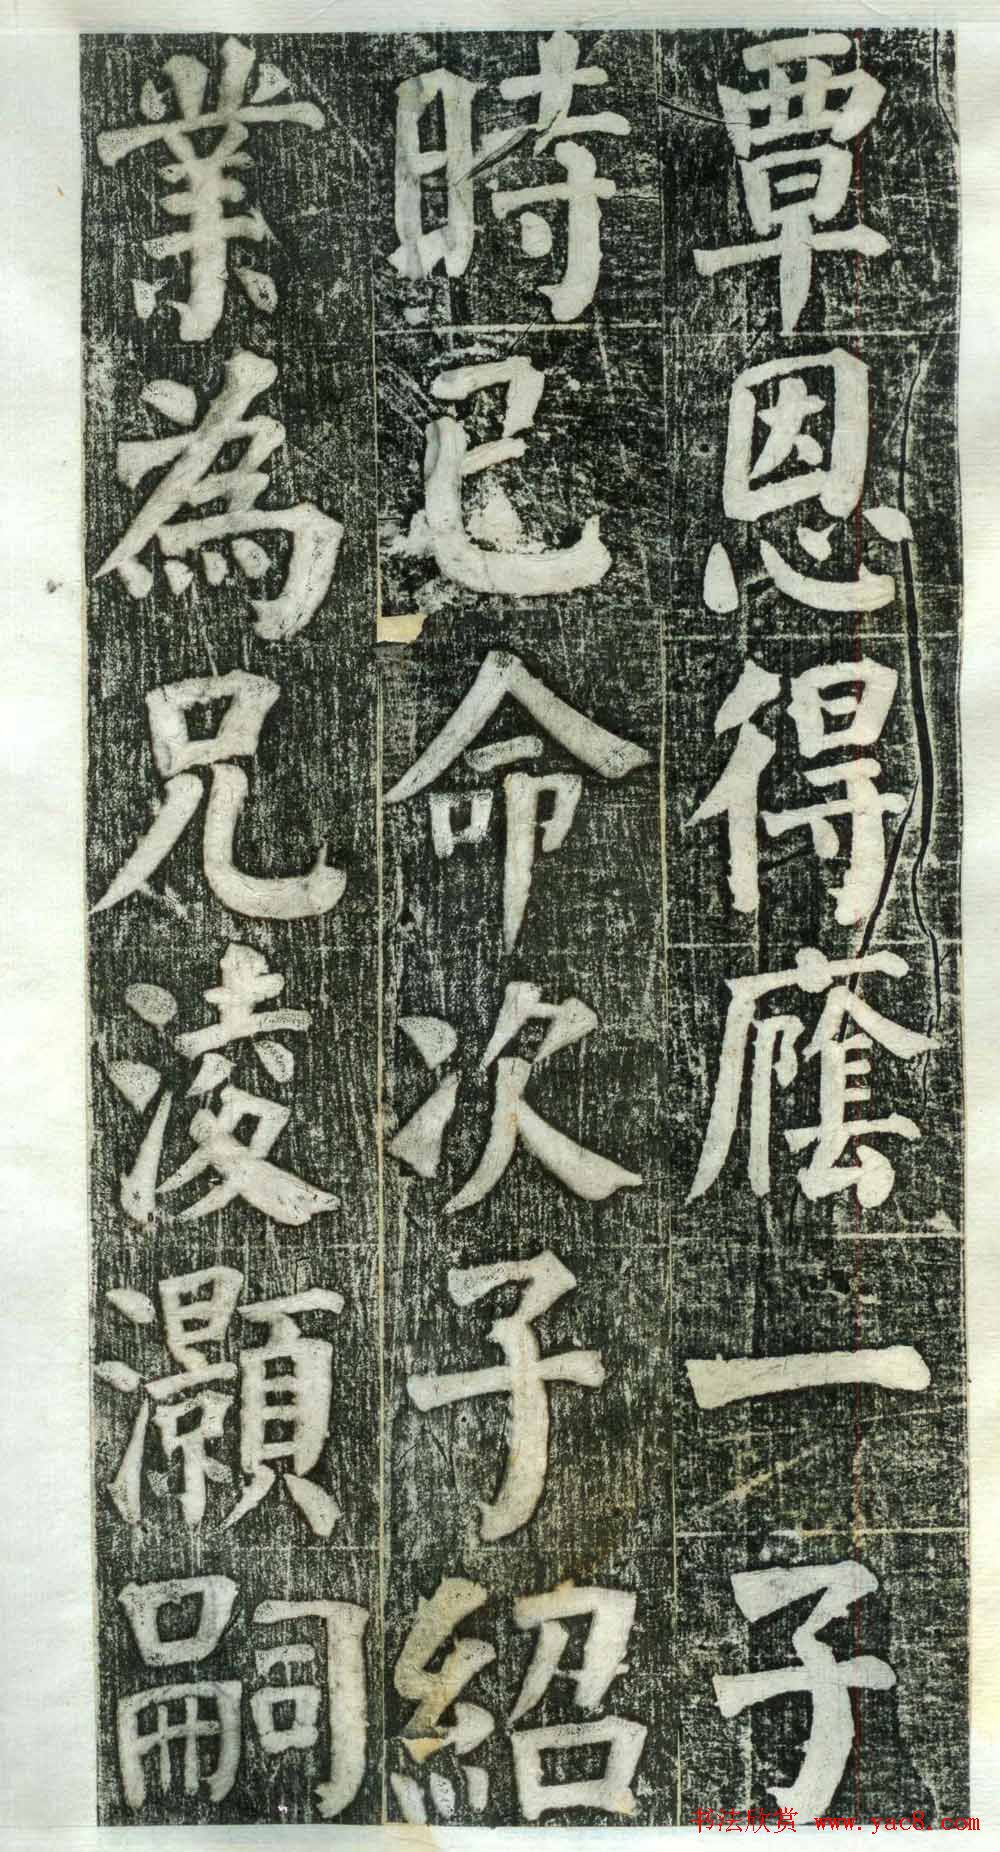 覃恩得廕一子
時已命次子紹
業為兄淩灝嗣
书法欣赏 www.yac8.com